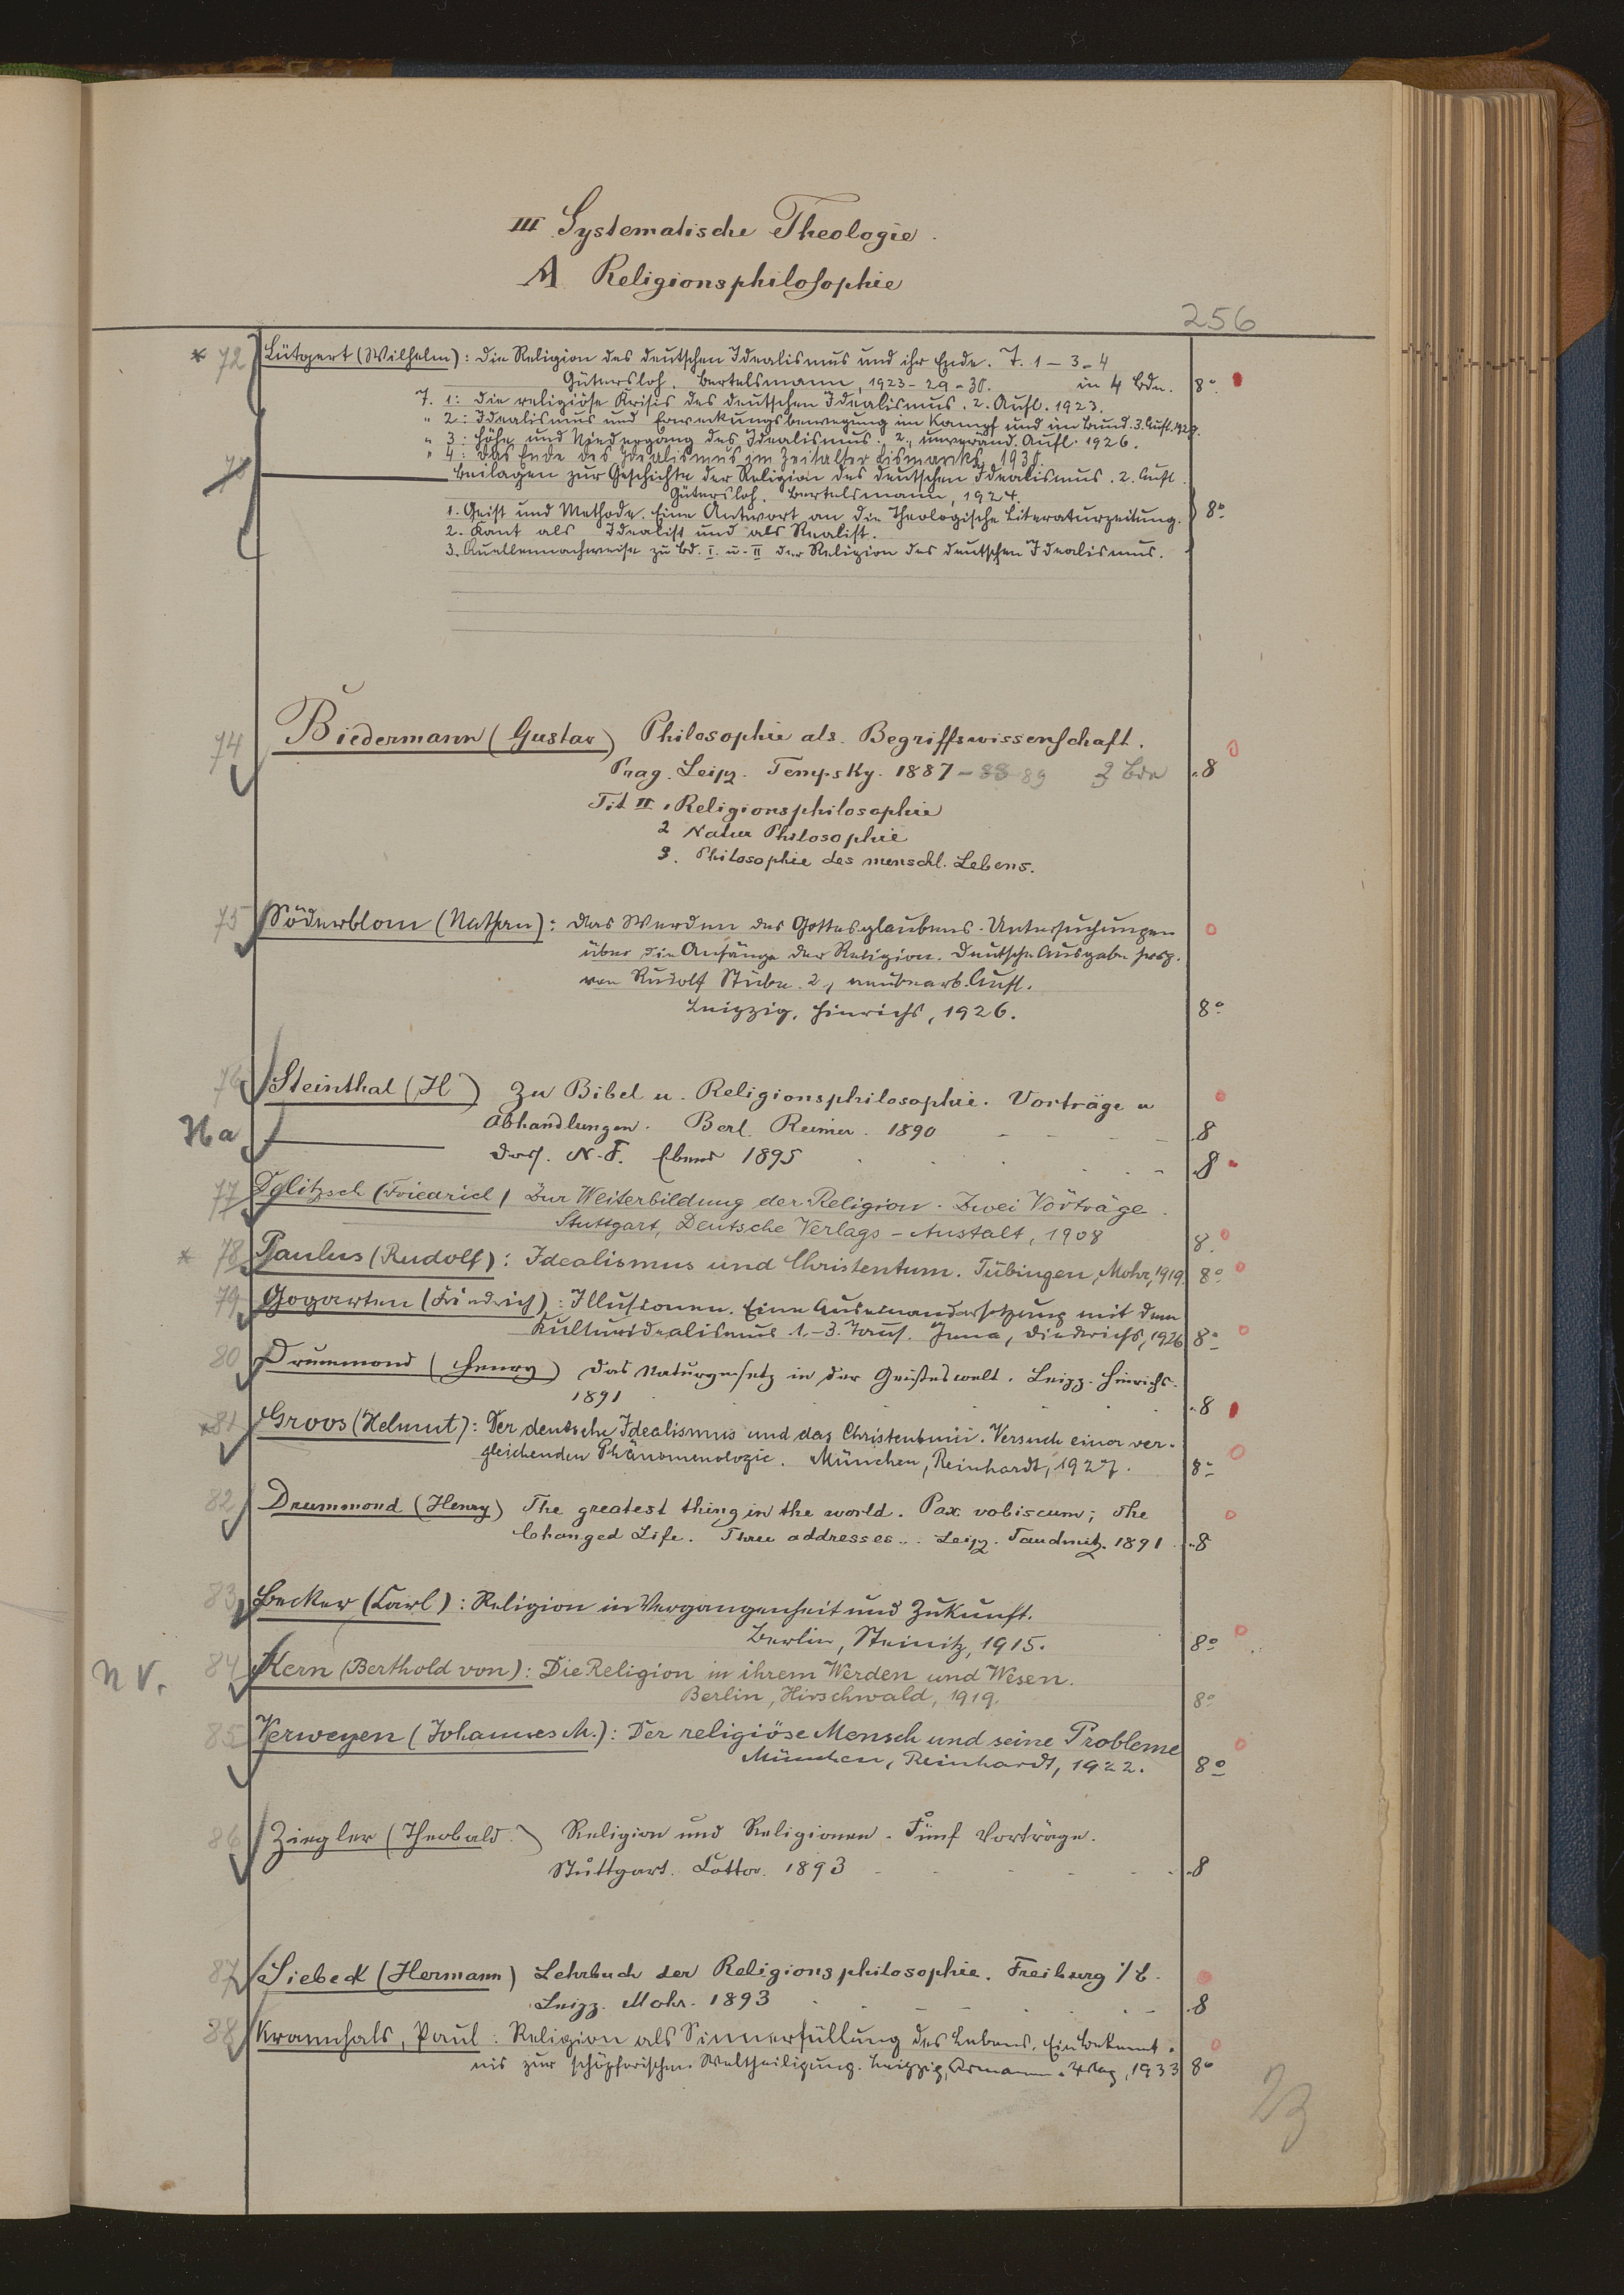 III Systematische Theologie.
A Religionsphilosophie
256
* 72 Lütgert (Wilhelm): Die Religion des deutschen Idealismus und ihr Ende. T. 1-3-4
Gütersloh, Bertelsmann, 1923-29-30. in 4 Bdn. 8°
T. 1: Die religiöse Krisis des deutschen Idealismus. 2. Aufl. 1923.
" 2: Idealismus und Erweckungsbewegung im Kampf und im Bund. 3. Aufl. 1929.
" 3: Höhe und Niedergang des Idealismus. 2., unveränd. Aufl. 1926.
" 4: Das Ende des Idealismus im Zeitalter Bismarcks, 1930.
73 Beilagen zur Geschichte der Religion des deutschen Idealismus. 2. Aufl.
Gütersloh, Bertelsmann, 1924.
1. Geist und Methode. Eine Antwort an die Theologische Literaturzeitung. 8°
2. Kant als Idealist und als Realist.
3. Quellennachweise zu Bd. I. u. II der Religion des deutschen Idealismus.
74 Biedermann (Gustav) Philosophie als Begriffswissenschaft.
Prag. Leipz. Tempsky. 1887-88 89 3 Bde 8
Tit II 1 Religionsphilosophie
2 Natur Philosophie
3. Philosophie des menschl. Lebens.
75 Söderblom (Nathan): Das Werden des Gottesglaubens. Untersuchungen
über die Anfänge der Religion. Deutsche Ausgabe hrsg.
von Rudolf Stübe. 2., neubearb. Aufl.
Leipzig, Hinrichs, 1926. 8°
76 Steinthal (H) Zu Bibel u. Religionsphilosophie. Vorträge u
Ha Abhandlungen. Berl. Reimer. 1890 8
Dass. N. F. Ebend 1895 8
77 Delitzsch (Friedrich) Zur Weiterbildung der Religion. Zwei Vorträge.
Stuttgart, Deutsche Verlags-Anstalt, 1908 8.
* 78 Paulus (Rudolf): Idealismus und Christentum. Tübingen, Mohr, 1919. 8°
79 Gogarten (Friedrich): Illusionen. Eine Auseinandersetzung mit dem
Kulturidealismus 1.-3. Taus. Jena, Diederichs, 1926 8°
80 Drummond (Henry) Das Naturgesetz in der Geisteswelt. Leipz. Hinrichs.
1891 8
* 81 Groos (Helmut): Der deutsche Idealismus und das Christentum. Versuch einer ver-
gleichenden Phänomenologie. München, Reinhardt, 1927. 8°
82 Drummond (Henry) The greatest thing in the world. Pax vobiscum; The
Changed Life. Three addresses.. Leipz. Tauchnitz. 1891 8
83 Becker (Carl): Religion in Vergangenheit und Zukunft.
Berlin, Steinitz, 1915. 8°
N V. 84 Kern (Berthold von): Die Religion in ihrem Werden und Wesen.
Berlin, Hirschwald, 1919. 8°
85 Verweyen (Johannes M.): Der religiöse Mensch und seine Probleme
München, Reinhardt, 1922. 8°
86 Ziegler (Theobald.) Religion und Religionen. Fünf Vorträge.
Stuttgart. Cotta. 1893 8
87 Siebeck (Hermann) Lehrbuch der Religionsphilosophie. Freiburg i/B.
Leipz. Mohr. 1893 8
88 Krannhals, Paul: Religion als Sinnerfüllung des Lebens. Ein Bekennt-
nis zur schöpferischen Weltheiligung. Leipzig, Armanen-Verlag, 1933 8°